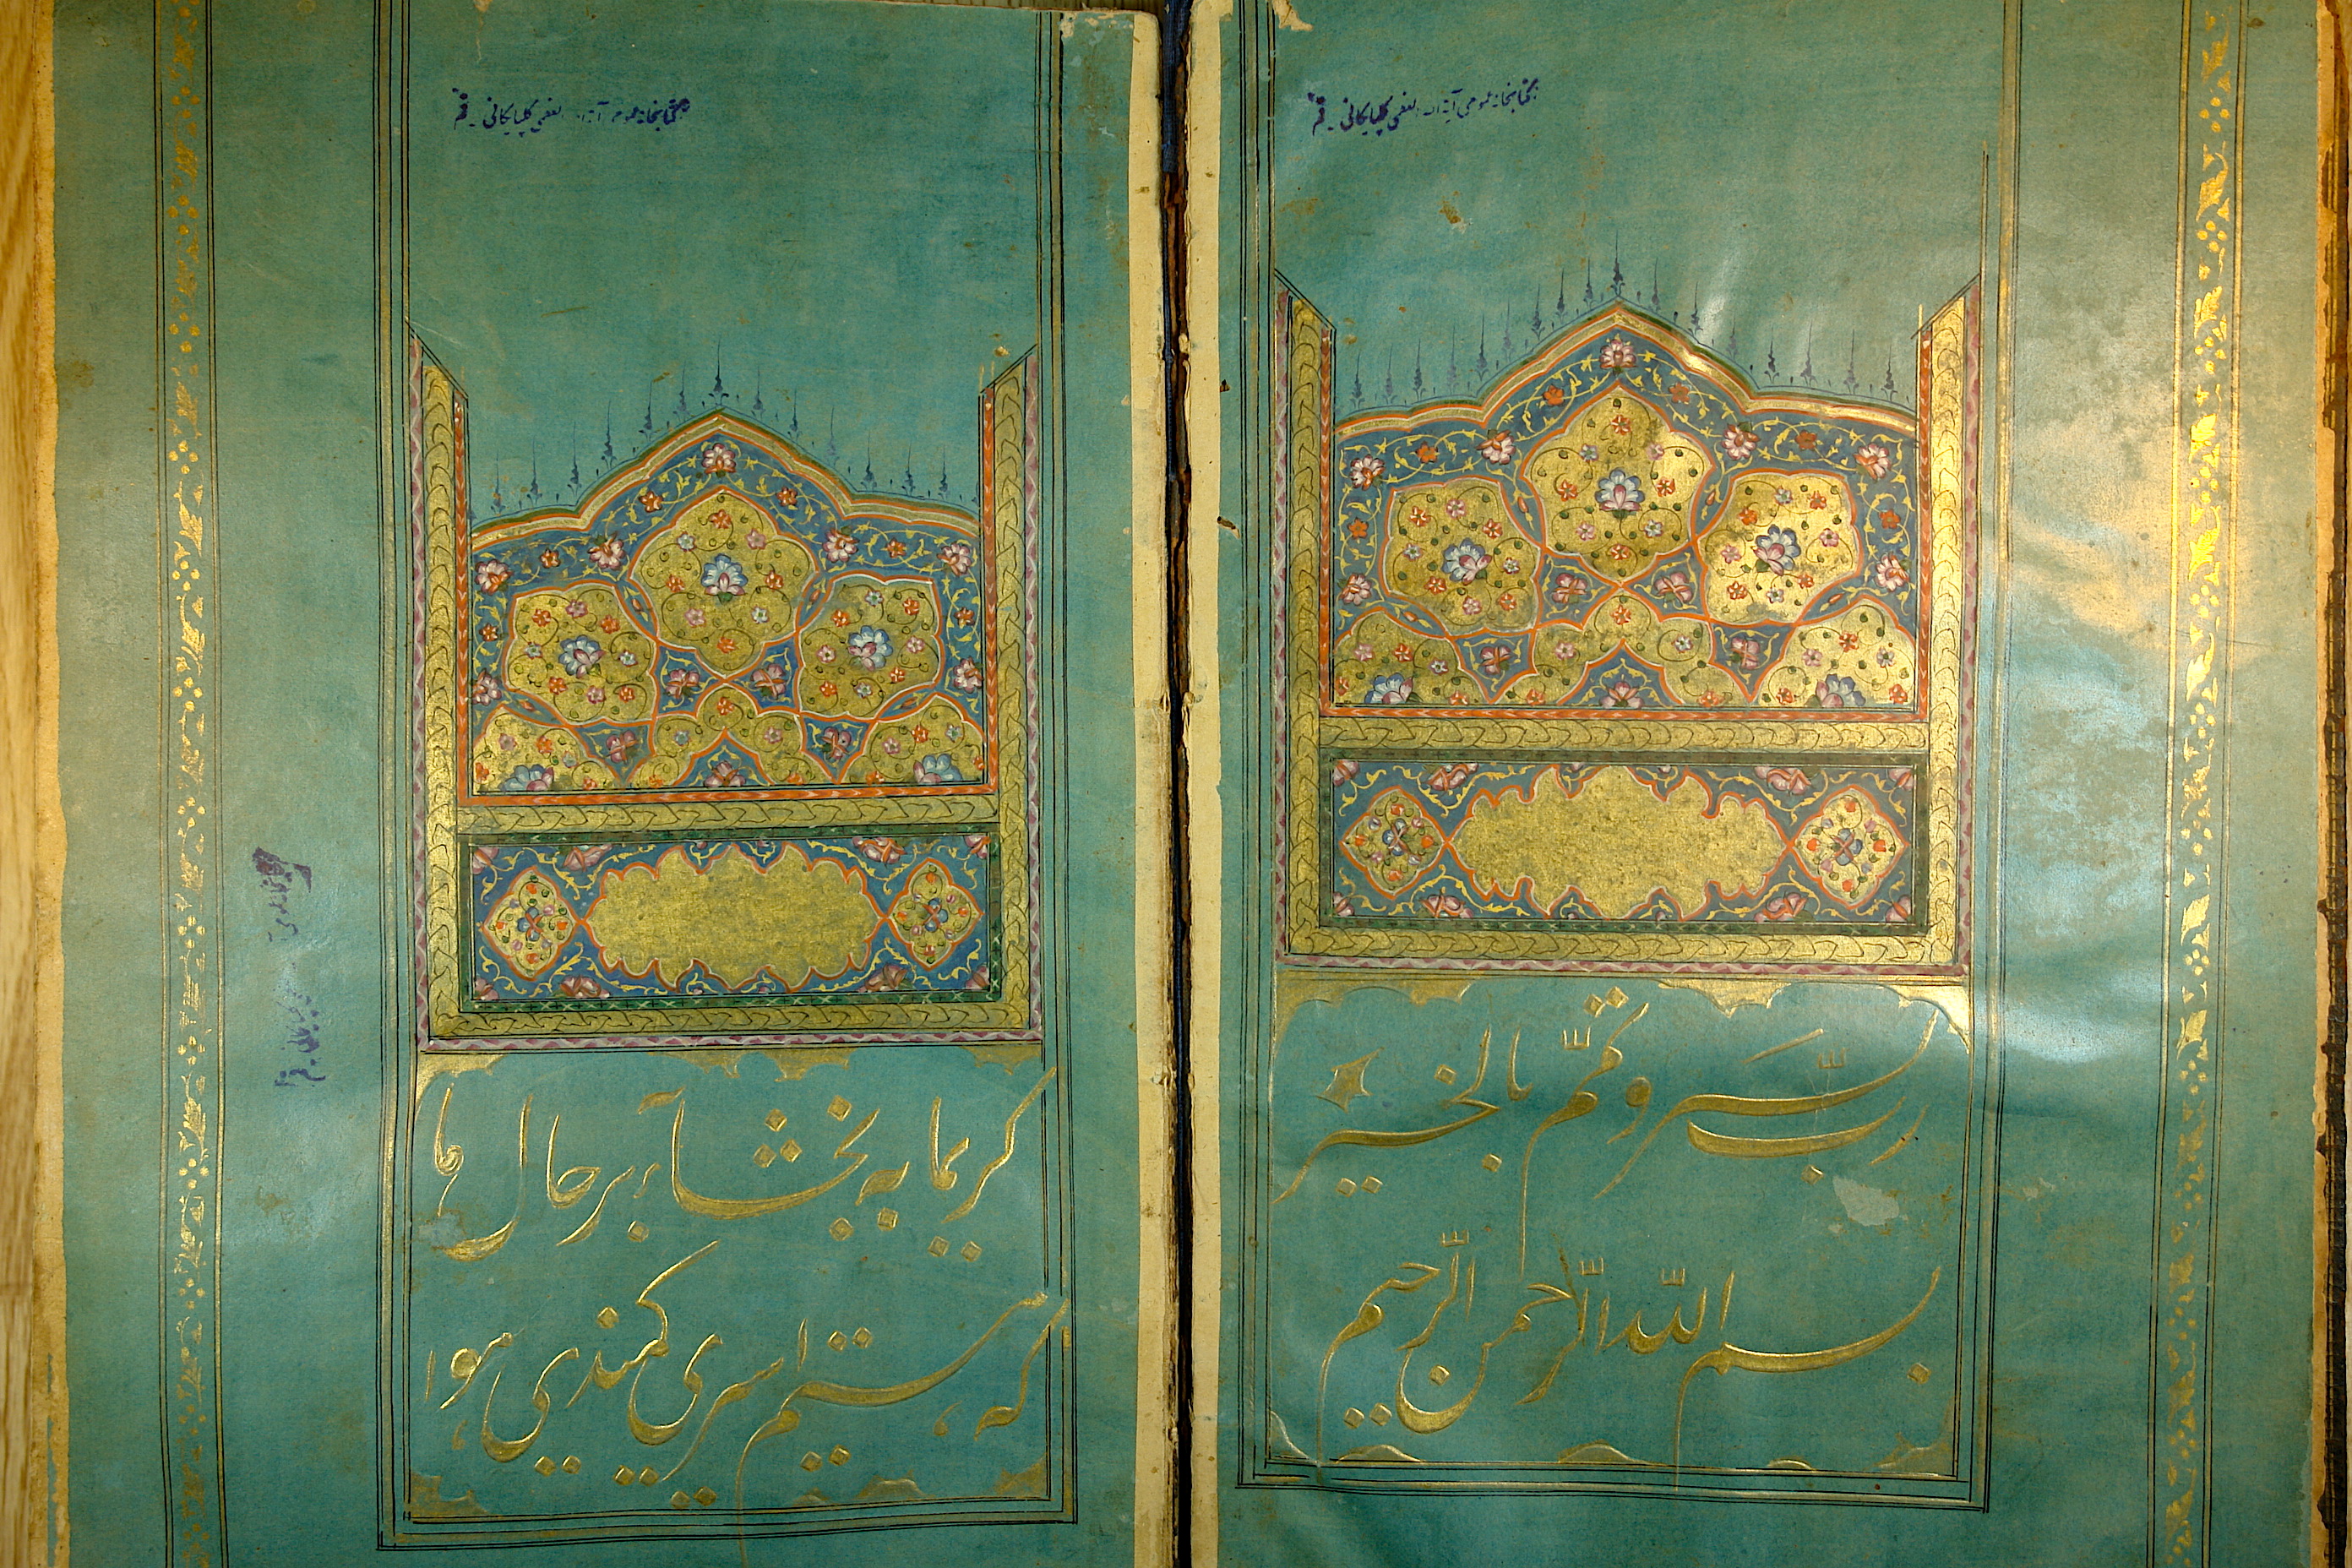 کتابخانه عمومی آیة الله العظمی گلپایگانی - قم
رب یسّر و تمّم بالخیر
بسم اللّه الرّحمن الرّحیم
کتابخانه عمومی آیة الله العظمی گلپایگانی - قم
کریما به بخشآء بر حال ما
که هستم اسیری کمندی هوا
گلپایگانی - قم